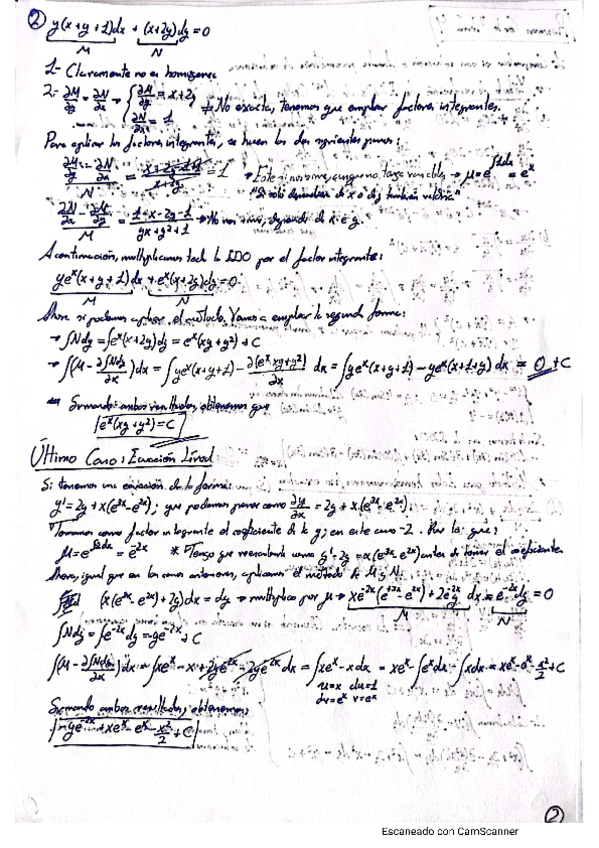 ② y(x+y+1)dx + (x+2y)dy = 0
M N
1- Claramente no es homogénea
2- ∂M/∂y = ∂N/∂x → { ∂M/∂y = x+2y ∂N/∂x = 1 ≠ No exacta, tenemos que emplear factores integrantes.
Para aplicar los factores integrantes, se hacen los dos siguientes pasos:
(∂M/∂y - ∂N/∂x)/N = = 1 → Este si nos sirve, aunque no tenga variables → μ = e^∫1dx = e^x
"Si solo dependiera de x o de y, también valdría"
(∂N/∂x - ∂M/∂y)/M = (1-x-2y-1)/(yx+y²+1) → No nos sirve, depende de x e y.
A continuación, multiplicamos toda la EDO por el factor integrante:
ye^x(x+y+1)dx + e^x(x+2y)dy = 0
M N
Ahora si podemos aplicar el método. Vamos a emplear la segunda forma:
→ ∫Ndy = ∫e^x(x+2y)dy = e^x(xy+y²) + C
→ ∫(M - ∂∫Ndy/∂x)dx = ∫ye^x(x+y+1) - ∂(e^x xy+y²)/∂x dx = ∫ye^x(x+y+1) - ye^x(x+1+y) dx = 0 + C
Sumando ambos resultados, obtenemos que
e^x(xy+y²) = C
Último Caso: Ecuación Lineal
Si tenemos una ecuación de la forma:
y' = 2y + x(e^3x - e^2x), que podemos poner como ∂y/∂x = 2y + x(e^3x - e^2x)
Tomamos como factor integrante el coeficiente de la y; en este caso -2. Por lo que:
* Tengo que reescribirlo como y' - 2y = x(e^3x - e^2x) antes de tomar el coeficiente
Ahora, igual que en los casos anteriores, aplicamos el método de M y N.
(x(e^3x - e^2x) + 2y)dx = dy → multiplico por μ → xe^-2x(e^3x - e^2x) + 2e^-2x y dx - e^-2x dy = 0
M N
∫Ndy = ∫e^-2x dy = -ye^-2x + C
∫(M - ∂∫Ndy/∂x)dx = ∫xe^x - x + 2ye^-2x - 2ye^-2x dx = ∫xe^x - xdx = xe^x - ∫e^x dx - ∫xdx = xe^x - e^x - x²/2 + C
u=x du=1
dv=e^x v=e^x
Sumando ambos resultados, obtenemos:
-ye^-2x + xe^x - e^x - x²/2 + C
②
Escaneado con CamScanner